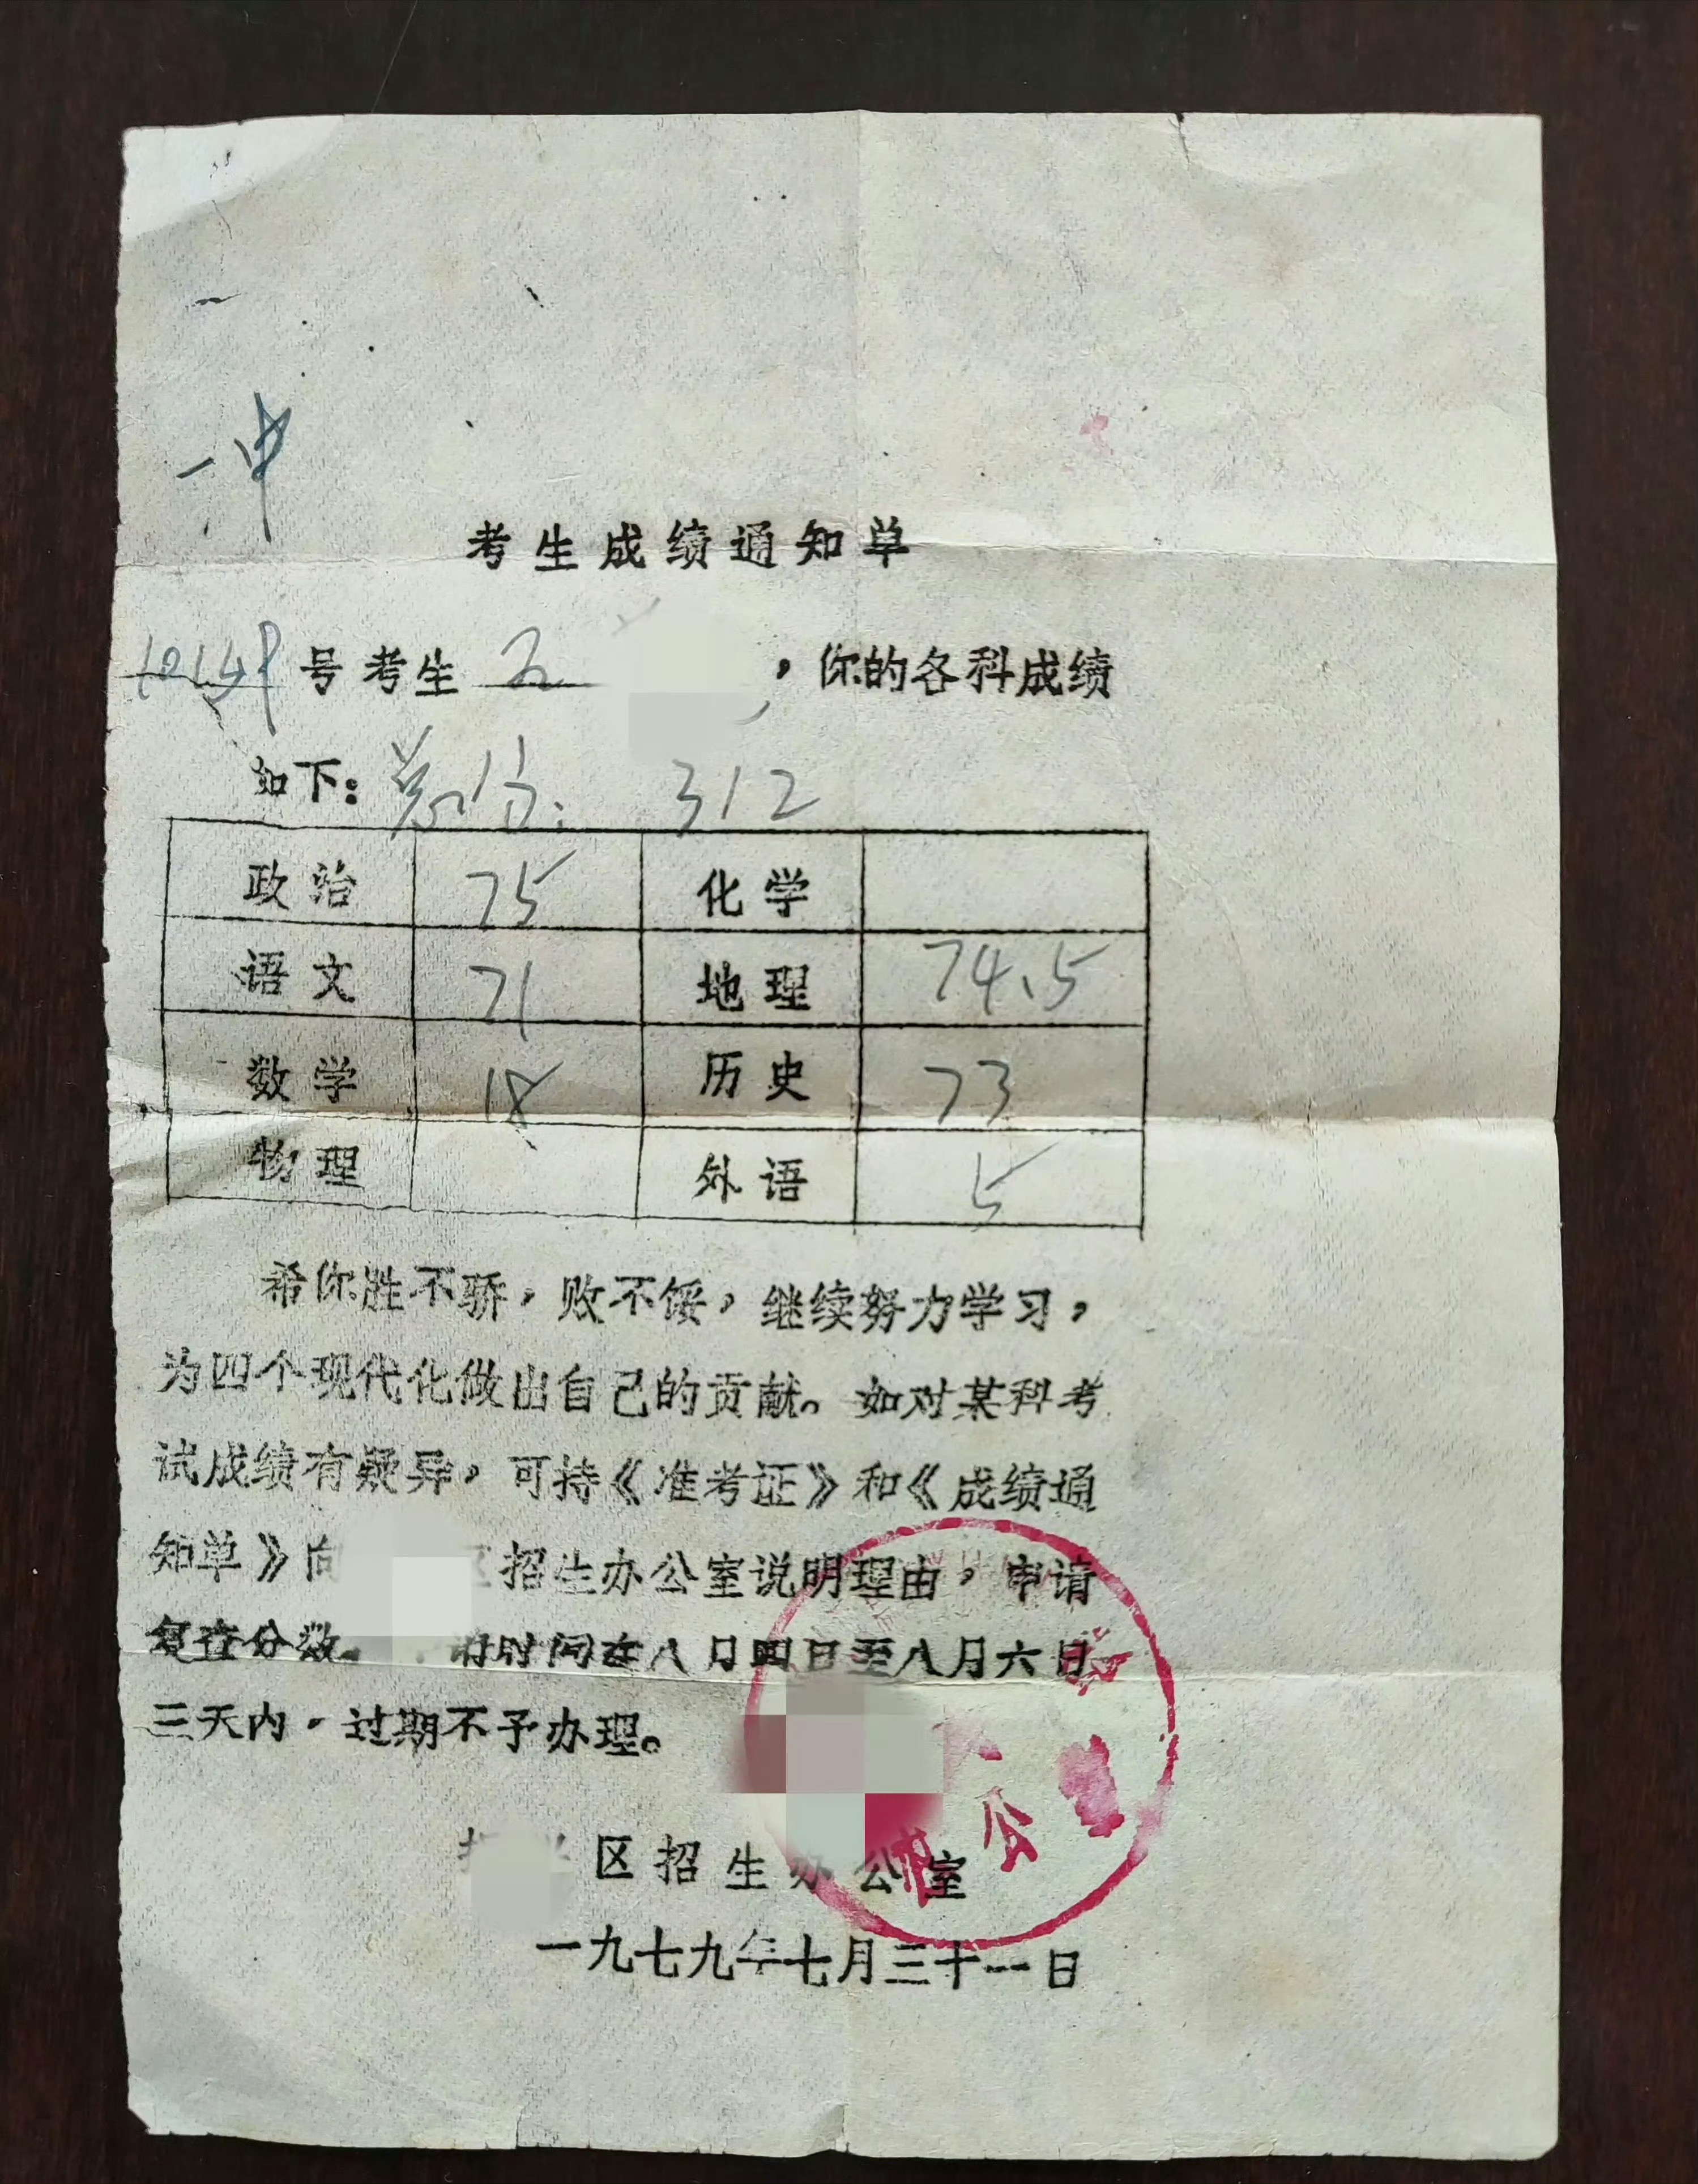 一中
考生成绩通知单
号考生，你的各科成绩
如下：总分：312
政治 75 化学
语文 71 地理 74.5
数学 18 历史 73
物理 外语 5
希你胜不骄，败不馁，继续努力学习，
为四个现代化做出自己的贡献。如对某科考
试成绩有疑异，可持《准考证》和《成绩通
知单》向区招生办公室说明理由，申请
复查分数。时间在八月四日至八月六日
三天内，过期不予办理。
区招生办公室
一九七九年七月三十一日